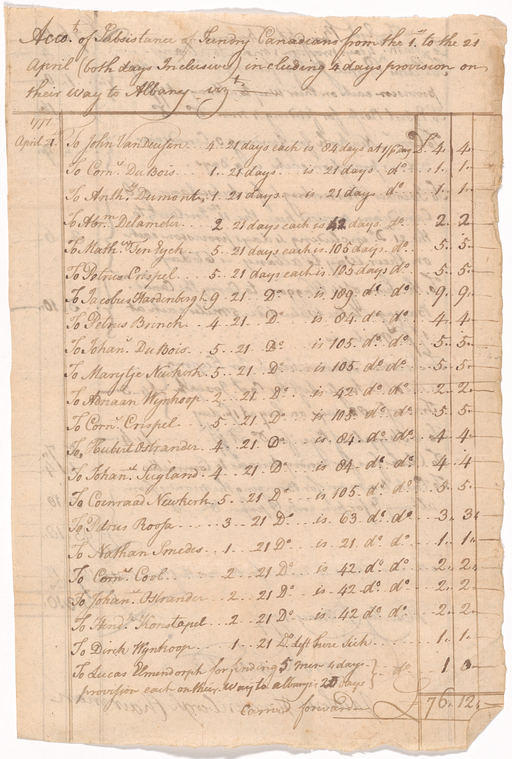 Acco.t of Subsistance of Sundry Canadians from the 1.st to the 21
April (both days Inclusive) including 4 days provision, on
their Way to Albany viz.t
1771
April 21. To John Van Deusen 4.. 21 days each is 84 days at 1/ £ 4.. 4..
To Corn.s Du Bois 1.. 21 days. is 21 days d.o 1.. 1..
To Anth.y Dumont, 1 21 days. is 21 days d.o 1.. 1..
To Abm. Delameter 2 21 days each is 42 days d.o 2.. 2
To Math.ws Ten Eyck 5.. 21 days each is 105 days d.o 5.. 5
To Petrus Crispel 5.. 21 days each is 105 days d.o 5.. 5
To Jacobus Hardenbergh 9.. 21 D.o is 189 d.o d.o 9.. 9
To Petrus Brinch 4.. 21 D.o is 84 d.o d.o 4.. 4
To Johan.s Du Bois 5.. 21 D.o is 105 d.o d.o 5.. 5
To Marytje Newkerk 5.. 21 D.o is 105 d.o d.o 5.. 5
To Adriaan Wynhoop 2.. 21 D.o is 42 d.o d.o 2.. 2
To Corn.s Crispel 5.. 21 D.o is 105 d.o d.o 5.. 5
To Ostrander 4.. 21 D.o is 84 d.o d.o 4.. 4
To Johan.s 4.. 21 D.o is 84. d.o d.o 4.. 4
To Coenraad Newkerk 5.. 21 D.o is 105. d.o d.o 5.. 5
To Petrus Roosa 3.. 21 D.o is 63 d.o d.o 3.. 3
To Nathan Smedes 1.. 21 D.o is 21. d.o d.o 1.. 1
To Corn.s Cool 2.. 21 D.o is 42. d.o d.o 2.. 2
To Johan.s Ostrander 2.. 21 D.o is 42 d.o d.o 2.. 2
To Hend.k Konstapel 2.. 21 D.o is 42 d.o d.o 2.. 2
To Dirck Wynhoop 1.. 21 D.o left here Sick 1.. 1
To Lucas Elmendorph for finding 5 men 4 days } d.o 1 0
provision each on their Way to albany is 20 days
Carried forward £ 76.. 12